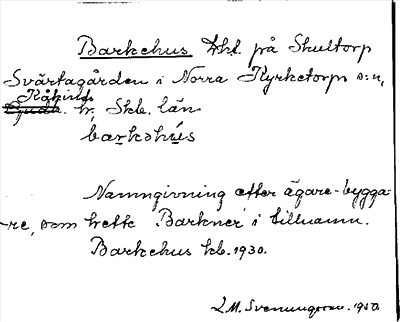 Barkehus, Lht. på Skultorp
Svärtagården i Norra Kyrketorp s:n,
Kåkinds
Gudh. hr, Skb. län
barkəhús
Namngivning efter ägare-bygga-
re, som hette Barkner i tillnamn.
Barkehus kb. 1930.
L.M. Svenungsson. 1950.